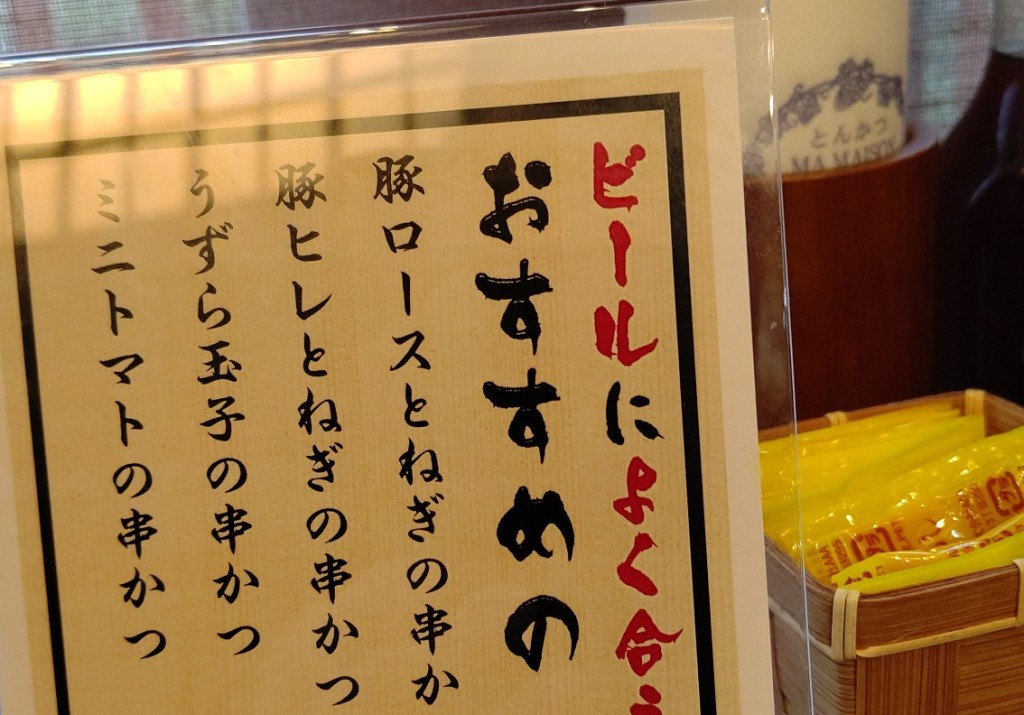 ビールによく合う
おすすめの
豚ロースとねぎの串か
豚ヒレとねぎの串かつ
うずら玉子の串かつ
ミニトマトの串かつ
とんかつ
MA MAISON